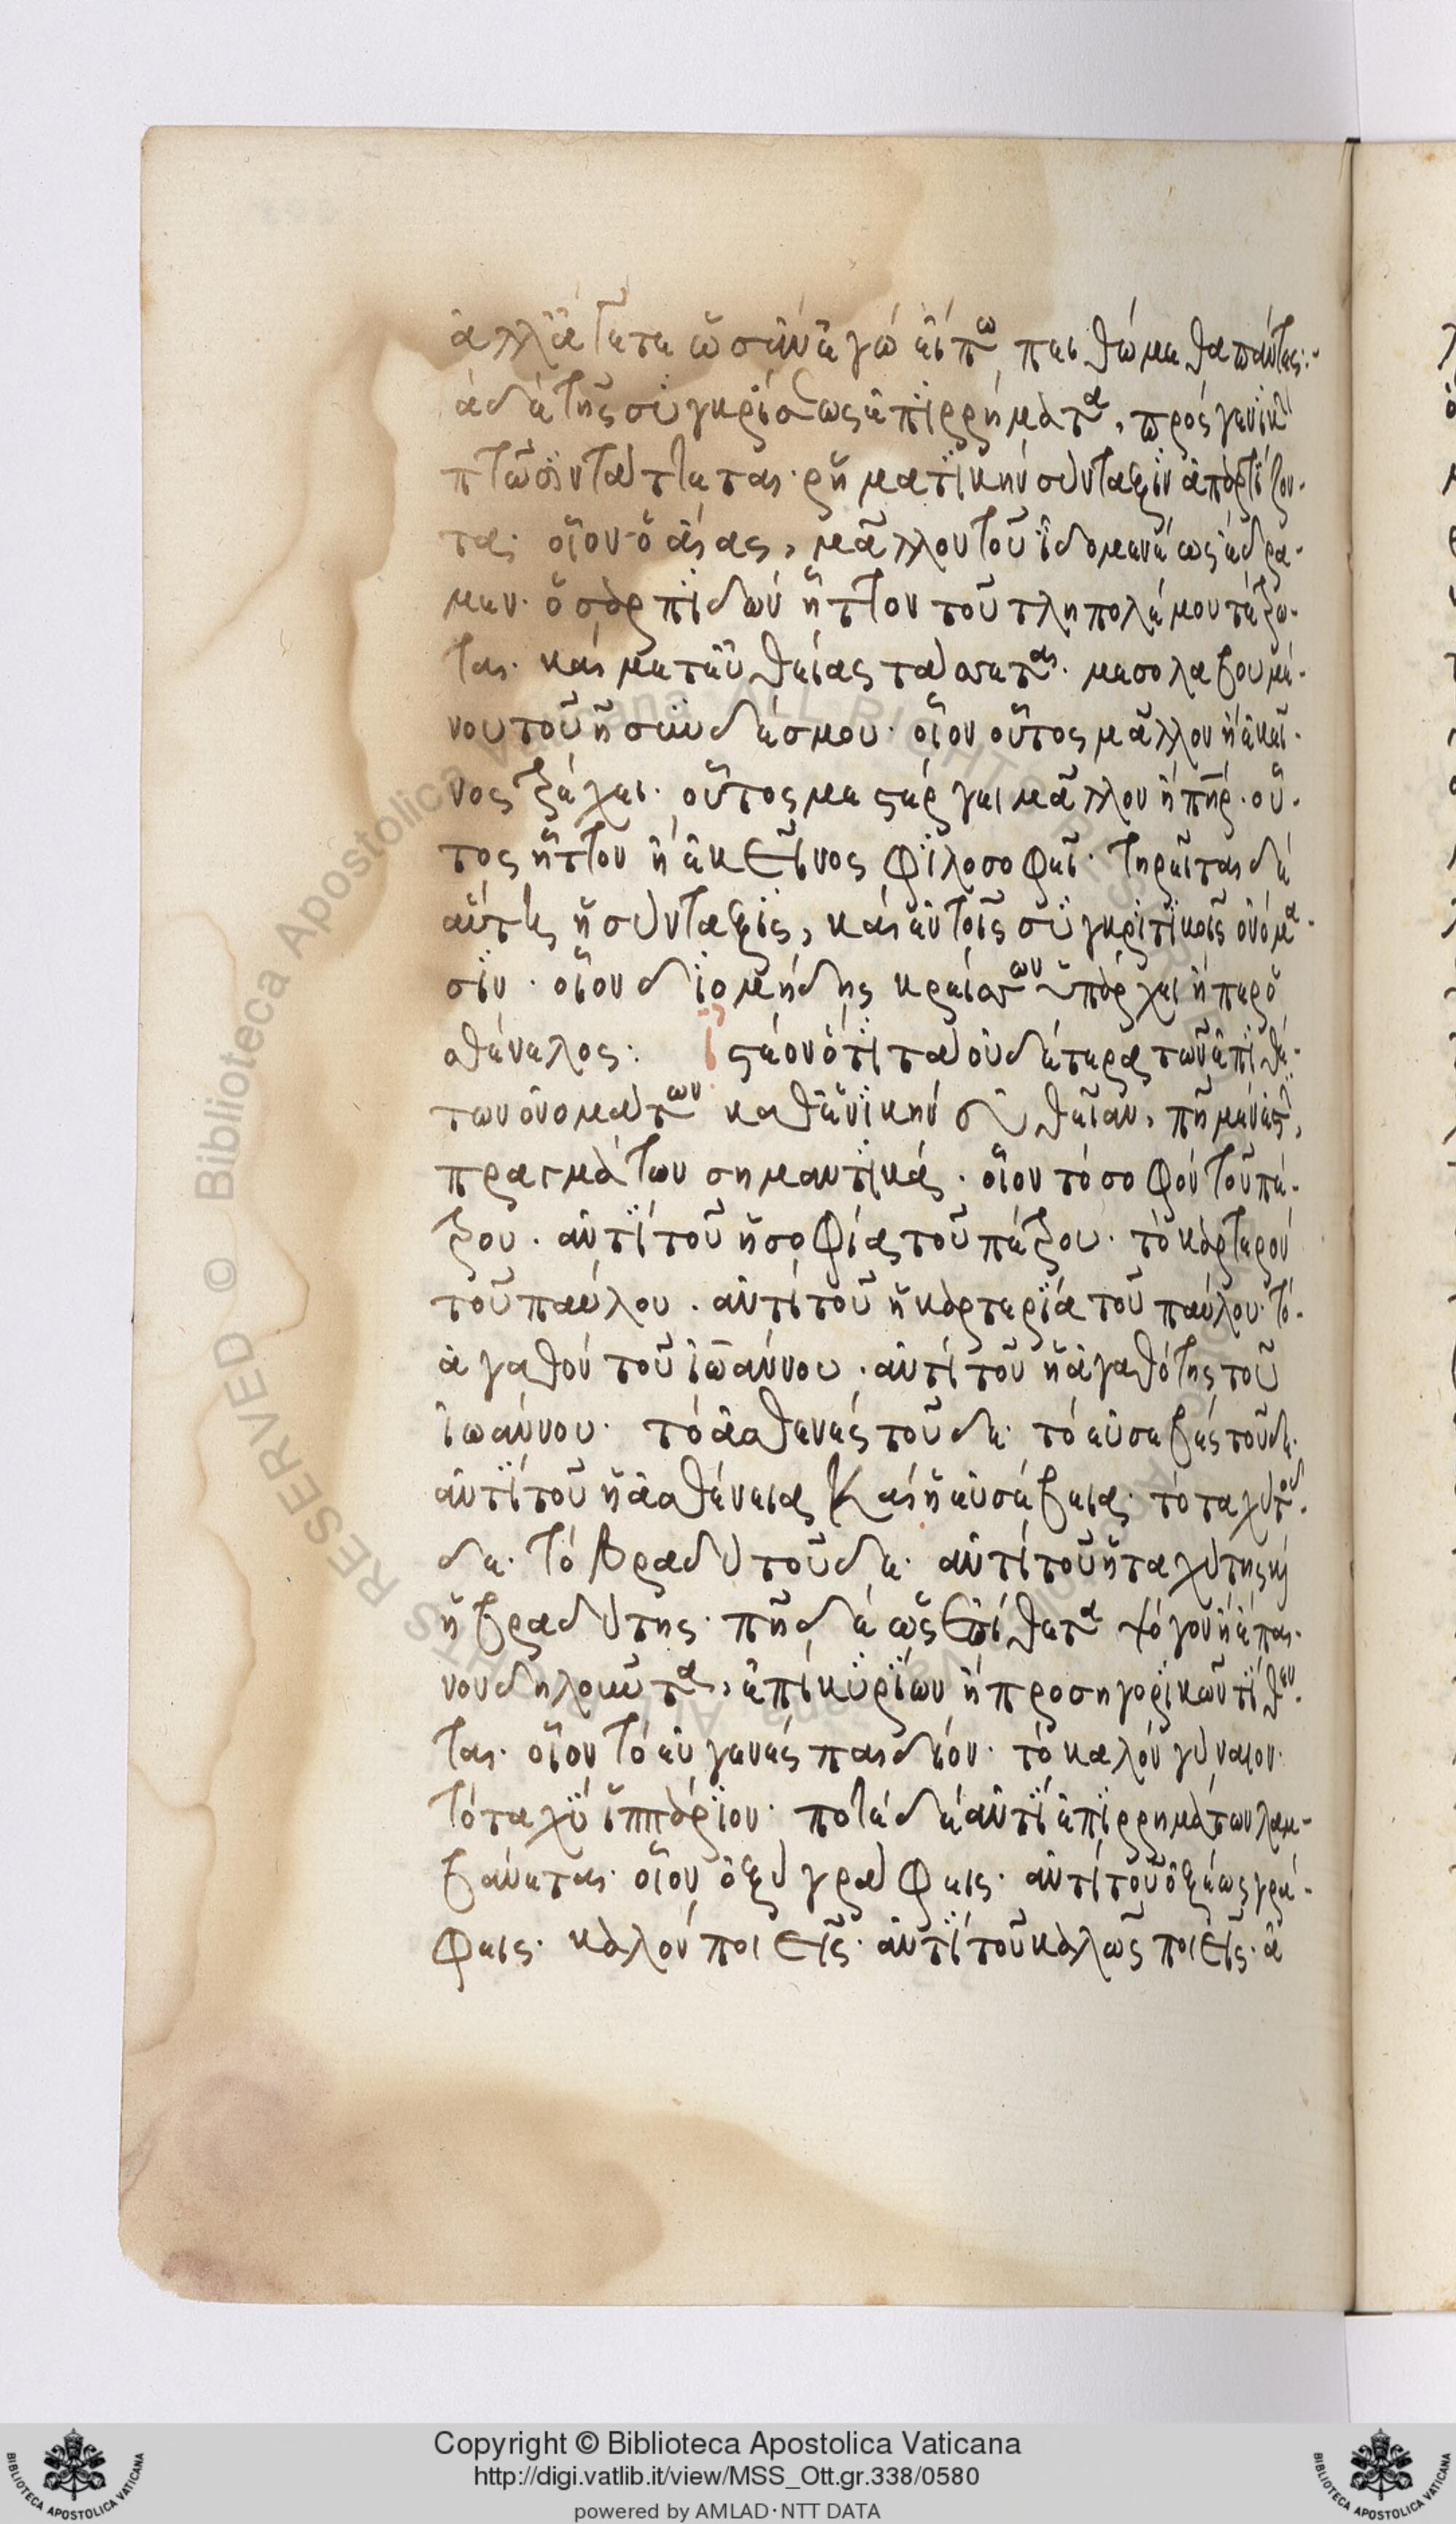 ἀλλ' ἄγετε ὡς ἂν ἐγὼ εἴπω πειθώμεθα πάντες:
ἃ δὲ τῆς συγκρίσεως ἐπιρρήματα, πρὸς γενικὴν
πτῶσιν τάττεται· ρηματικὴν σύνταξιν ἀπαρτίζον-
τα· οἷον ὁ αἴας, μᾶλλον τοῦ ἰδομενέως ἔδρα-
μεν· ὁ σαρπιδὼν ἧττον τοῦ τληπολέμου τέτρω-
ται· καὶ μετ' εὐθείας τάσσεται· μεσολαβουμέ-
νου τοῦ ἢ συνδέσμου· οἷον οὗτος μᾶλλον ἢ ἐκεῖ-
νος τρέχει· οὗτός με στέργει μᾶλλον ἢ πηρ· οὗ-
τος ἧττον ἢ ἐκεῖνος φιλοσοφεῖ· τηρεῖται δὲ
αὕτη ἡ σύνταξις, καὶ ἐν τοῖς συγκριτικοῖς ὀνόμα-
σιν· οἷον διομήδης κρείσσων ὑπάρχει ἤπερ ὁ
σθένελος: ἰστέον ὅτι τὰ οὐδέτερα τῶν ἐπιθέ-
των ὀνομάτων καθ' ἑνικὴν εὐθεῖαν, πῆ μέν ἐστι,
πραγμάτων σημαντικά· οἷον τὸ σοφὸν τοῦ πέ-
τρου· ἀντὶ τοῦ ἡ σοφία τοῦ πέτρου· τὸ καρτερὸν
τοῦ παύλου· ἀντὶ τοῦ ἡ καρτερία τοῦ παύλου· τὸ
ἀγαθὸν τοῦ ἰωάννου· ἀντὶ τοῦ ἡ ἀγαθότης τοῦ
ἰωάννου· τὸ ἀσθενὲς τοῦδε· τὸ εὐσεβὲς τοῦδε·
ἀντὶ τοῦ ἡ ἀσθένεια καὶ ἡ εὐσέβεια· τὸ ταχὺ τοῦ-
δε· τὸ βραδὺ τοῦδε· ἀντὶ τοῦ ἡ ταχύτης καὶ
ἡ βραδύτης· πῆ δὲ ὡς ἐπίθετα ψόγον ἢ ἔπαι-
νον δηλοῦντα, ἐπὶ κυρίων ἢ προσηγορικῶν τίθεν-
ται· οἷον τὸ εὐγενὲς παιδίον· τὸ καλὸν γύναιον·
τὸ ταχὺ ἱππάριον· ποτὲ δὲ ἀντὶ ἐπιρρημάτων λαμ-
βάνεται· οἷον ὀξὺ γράφεις· ἀντὶ τοῦ ὀξέως γρά-
φεις· καλὸν ποιεῖς· ἀντὶ τοῦ καλῶς ποιεῖς· ἃ
Copyright © Biblioteca Apostolica Vaticana
http://digi.vatlib.it/view/MSS_Ott.gr.338/0580
powered by AMLAD·NTT DATA